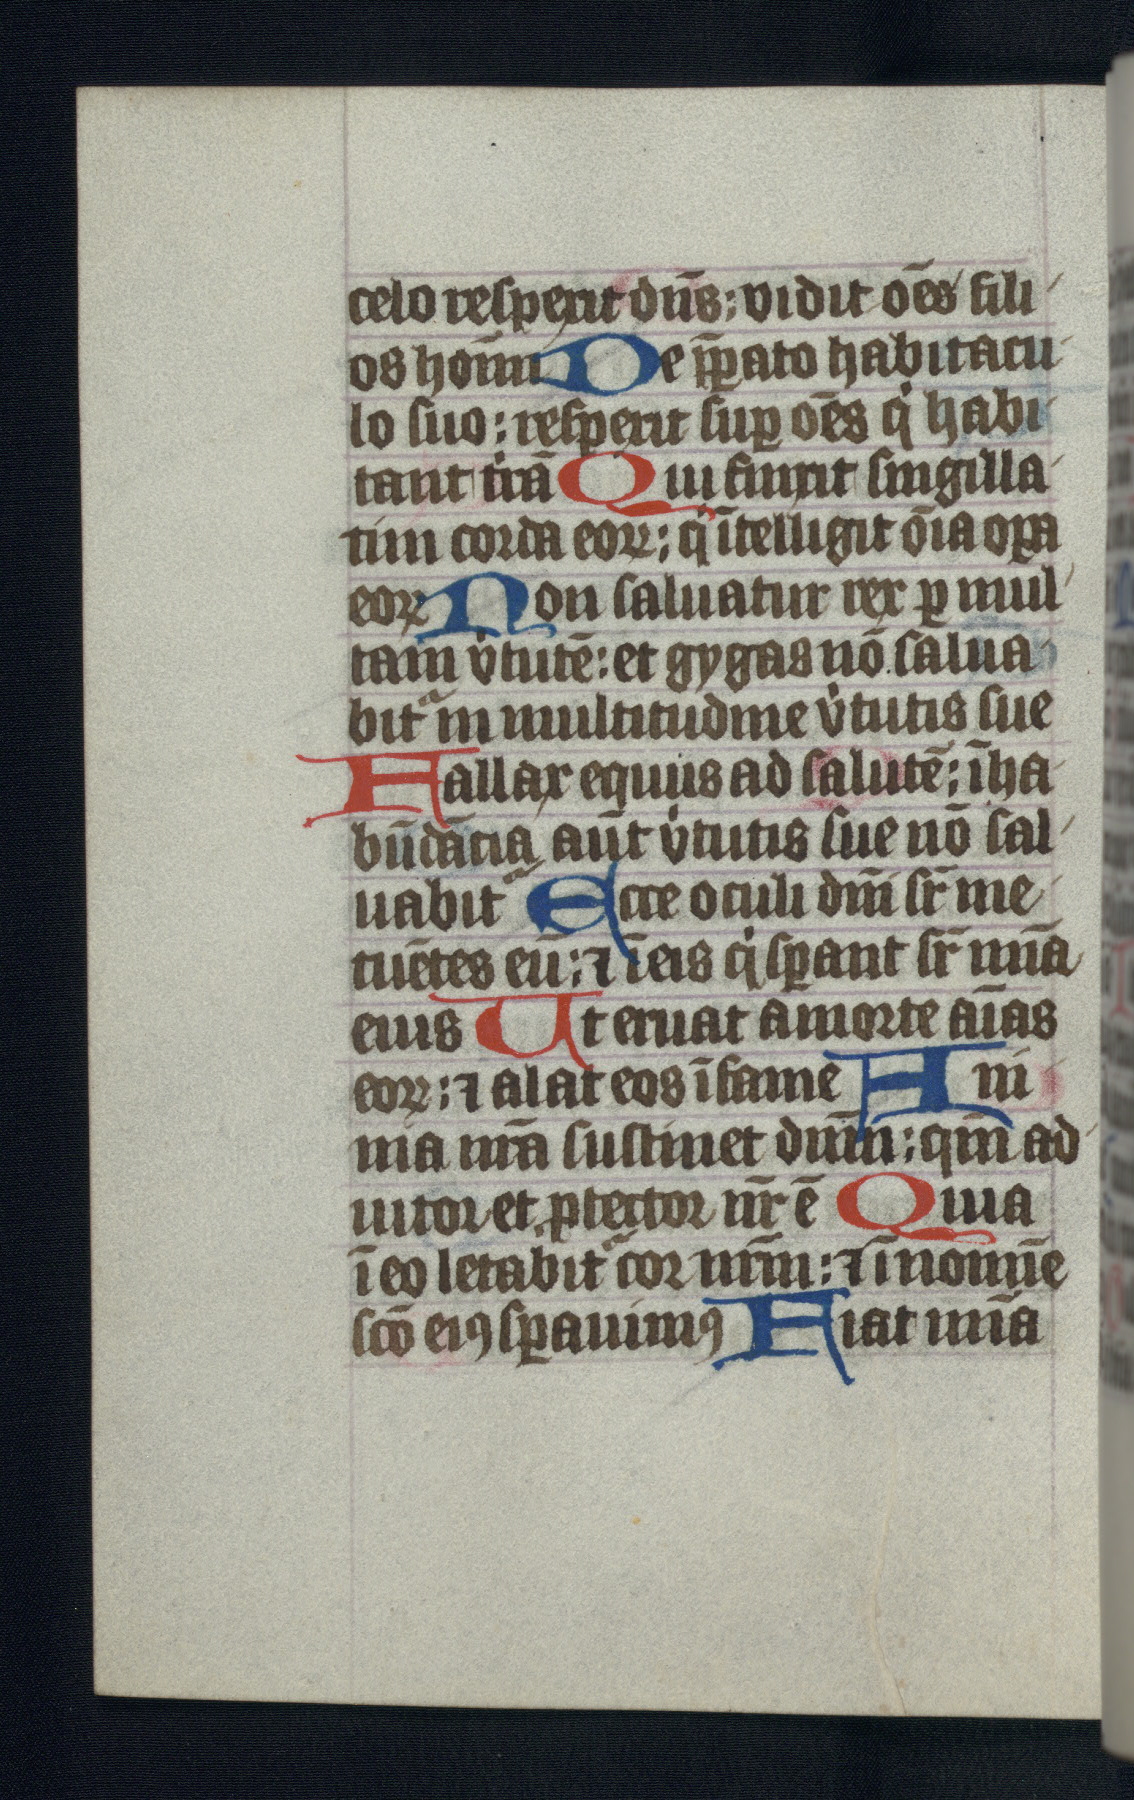 celo respexit dn̄s: vidit ōēs fili
os homī̄n De p̄pato habitacu
lo suo: respexit suꝑ oēs qͥ habi
tant tͥrā Qui finxit singilla
tim corda eoꝝ: qͥ ītelligit ōīa oꝑa
eoꝝ Non saluatur rex ꝑ mul
tam vͥtutē: et gygas nō salua
bitᷓ in multitudine vͥtutis sue
Fallax equus ad salutē: ī ha
būdācia aūt vͥtutis sue nō sal
uabitᷓ Ecce oculi dn̄i sr̄ me
tuētes eū: ⁊ ī eis qͥ sꝑant sr̄ mīa
eius Ut eruat a morte aīas
eoꝝ: ⁊ alat eos ī fame Ani
ma nr̄a sustinet dn̄m: qm̄ ad
iutor et ꝓtector nr̄ ē Quia
ī eo letabitᷓ cor nr̄m: ⁊ ī nomīe
scō eiꝰ sꝑauimꝰ Fiat mīa